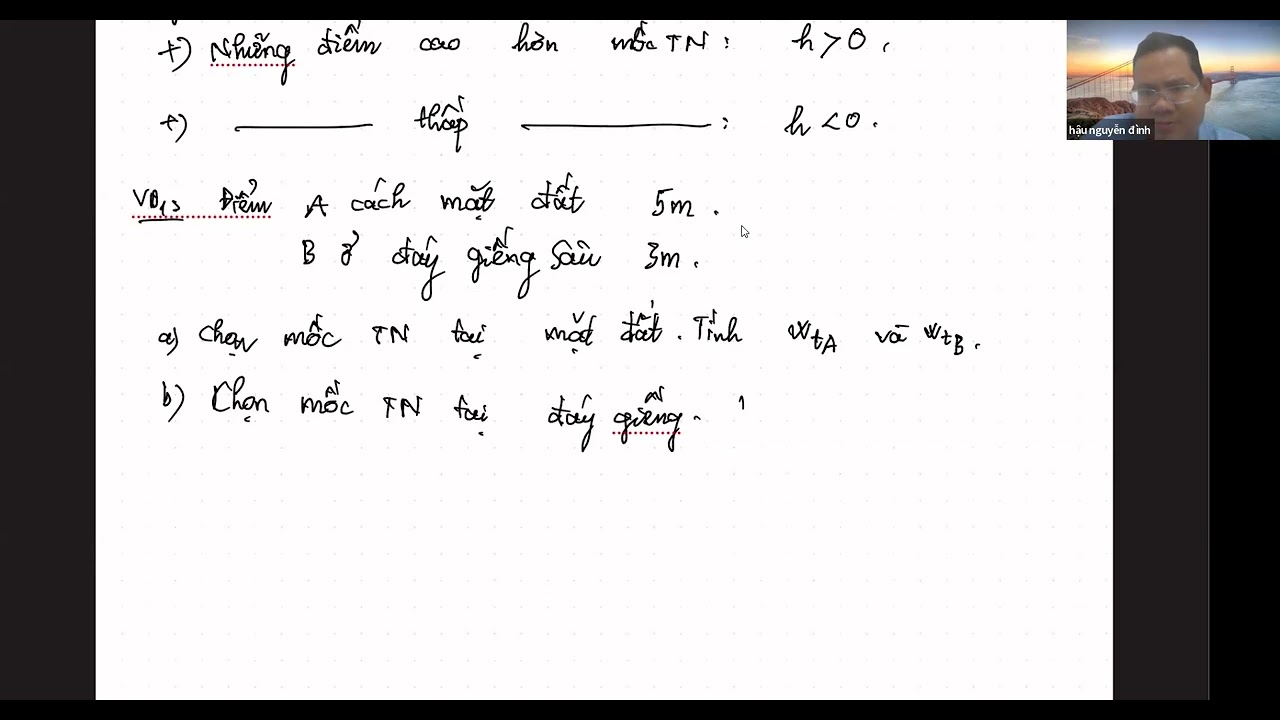 +) Những điểm cao hơn mốc TN : h > 0 .
+) ——— thấp ——— : h < 0 .
hậu nguyễn đình
Điểm A cách mặt đất 5m .
B ở đáy giếng sâu 3m .
a) Chọn mốc TN tại mặt đất . Tính WtA và WtB .
b) Chọn mốc TN tại đáy giếng .